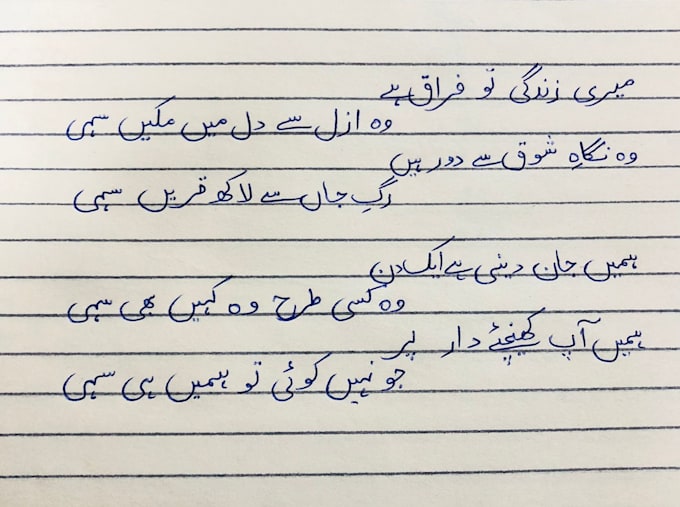 میری زندگی تو فراق ہے
وہ ازل سے دل میں مکیں سہی
وہ نگاہِ شوق سے دور ہیں
رگِ جاں سے لاکھ قریں سہی
ہمیں جان دینی ہے ایک دن
وہ کسی طرح وہ کہیں بھی سہی
ہمیں آپ کھینچئے دار پر
جو نہیں کوئی تو ہمیں ہی سہی